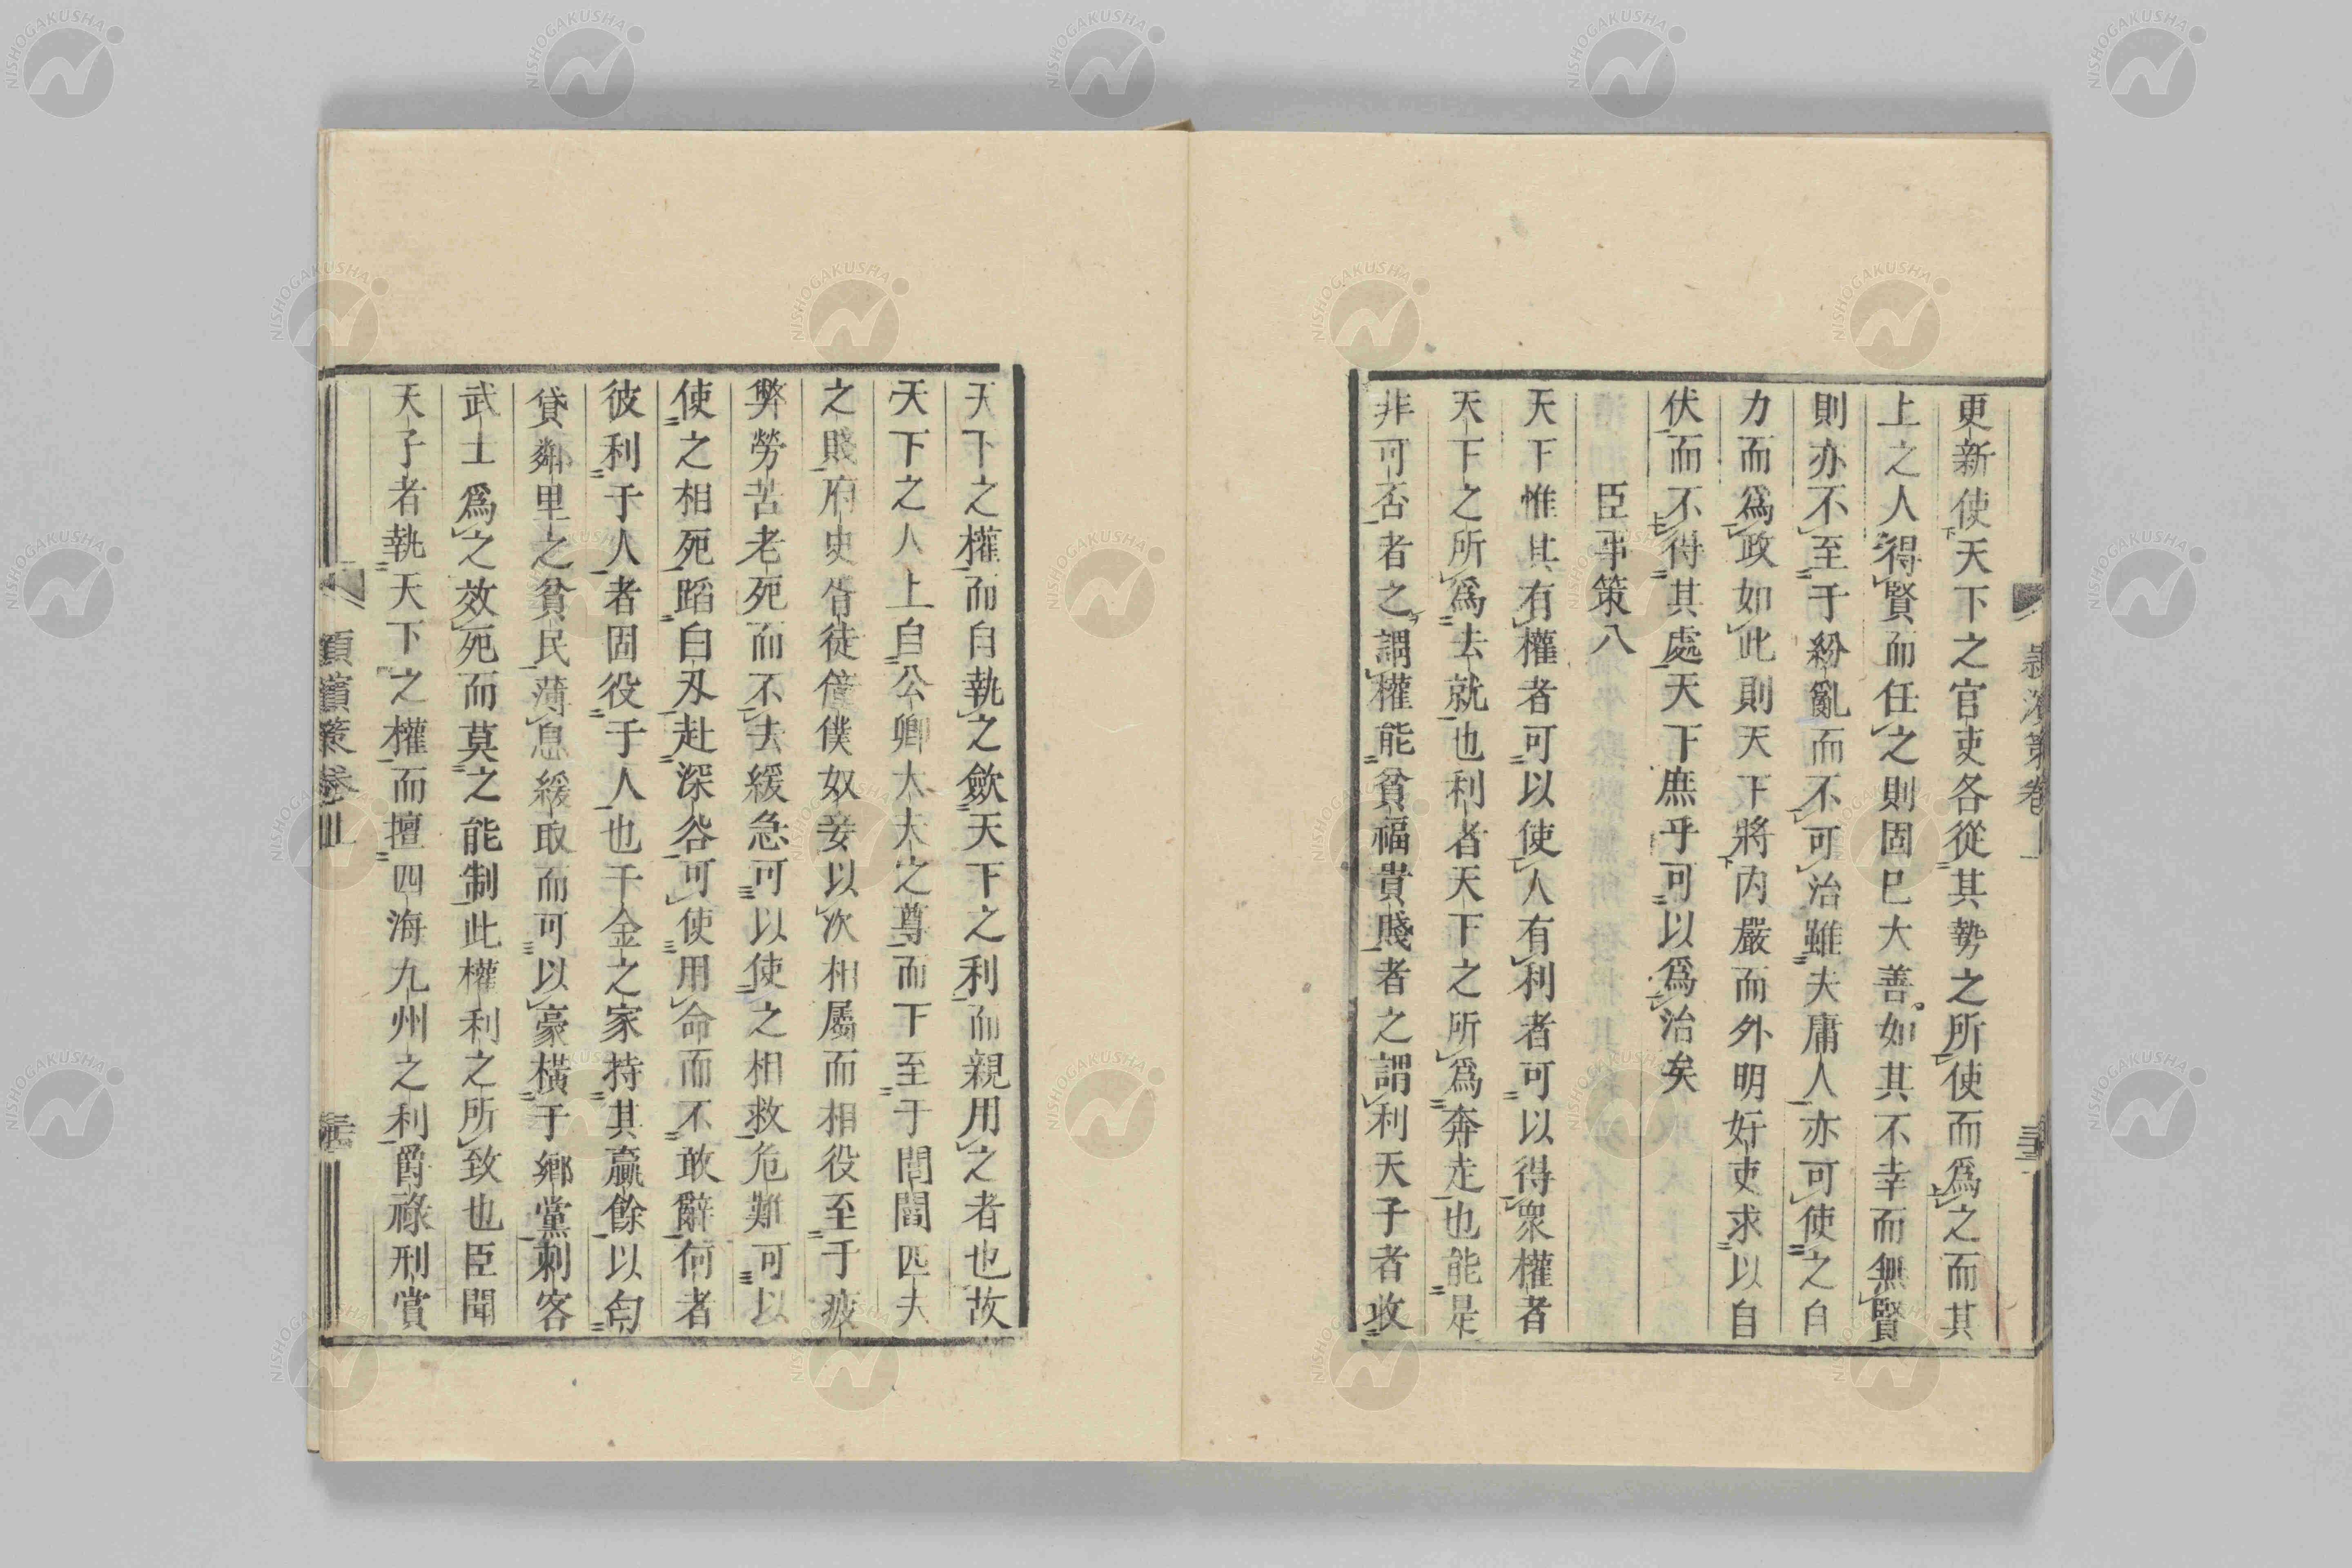 更新使天下之官吏各從其勢之所使而爲之而其
上之人得賢而任之則固巳大善如其不幸而無賢
則亦不至于紛亂而不可治雖夫庸人亦可使之自
力而爲政如此則天下將内嚴而外明奸吏求以自
伏而不得其處天下庶乎可以爲治矣
臣事策八
天下惟其有權者可以使人有利者可以得衆權者
天下之所爲去就也利者天下之所爲奔走也能是
非可否者之謂權能貧福貴賤者之謂利天子者收
天下之權而自執之歛天下之利而親用之者也故
天下之人上自公卿大夫之尊而下至于閭閻匹夫
之賤府史胥徒僮僕奴妾以次相屬而相役至于疲
弊勞苦老死而不去緩急可以使之相救危難可以
使之相死蹈白刃赴深谷可使用命而不敢辭何者
彼利于人者固役于人也千金之家持其贏餘以匄
貸鄰里之貧民薄息緩取而可以豪橫于鄉黨刺客
武士爲之效死而莫之能制此權利之所致也臣聞
天子者執天下之權而擅四海九州之利爵祿刑賞
潁濱策卷上
NISHOGAKUSHA